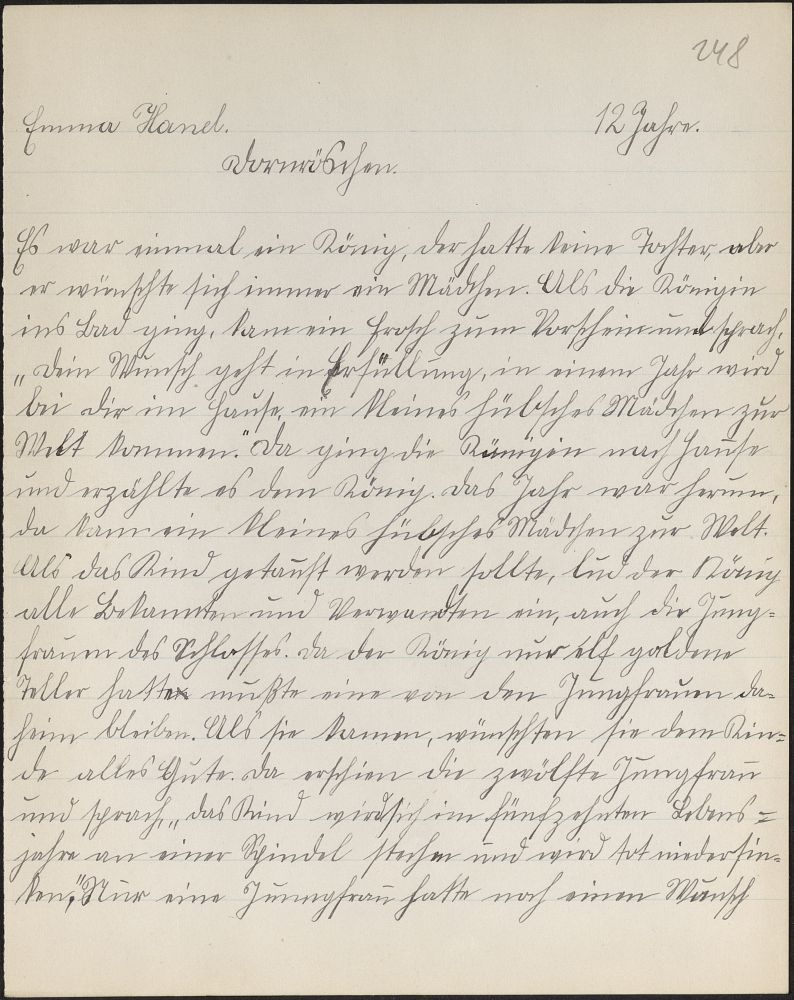 248
Emma Hanel. 12 Jahre.
Dornröschen.
Es war einmal ein König, der hatte keine Tochter, aber
er wünschte sich immer ein Mädchen. Als die Königin
ins Bad ging, kam ein Frosch zum Vorschein und sprach,
„Dein Wunsch geht in Erfüllung, in einem Jahr wird
bei dir im Hause, ein kleines hübsches Mädchen zur
Welt kommen." Da ging die Königin nach Hause
und erzählte es dem König. Das Jahr war herum,
da kam ein kleines hübsches Mädchen zur Welt.
Als das Kind getauft werden sollte, lud der König
alle Bekannten und Verwandten ein, auch die Jung=
frauen des Schlosses. Da der König nur elf goldene
Teller hatte mußte eine von den Jungfrauen da=
heim bleiben. Als sie kamen, wünschten sie dem Kin=
de alles Gute. Da erschien die zwölfte Jungfrau
und sprach, „das Kind wird sich im fünfzehnten Lebens=
jahre an einer Spindel stechen und wird tot niedersin=
ken," Nur eine Jungfrau hatte noch einen Wunsch